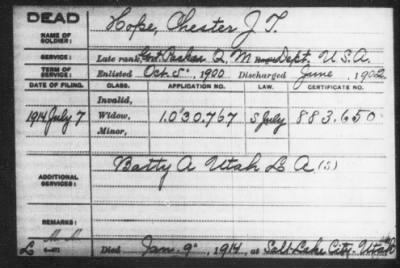 DEAD
NAME OF SOLDIER:
Hope, Chester J. T.
SERVICE:
Late rank, Packer Q. M. Dept, U.S.A.
TERM OF SERVICE:
Enlisted Oct. 5, 1900 Discharged June, 1902
DATE OF FILING. CLASS. APPLICATION NO. LAW. CERTIFICATE NO.
Invalid,
1914 July 7 Widow, 1,030,767 S July 883.650
Minor,
ADDITIONAL SERVICES:
Batty A Utah L A (S)
REMARKS:
Died Jan. 9, 1914, at Salt Lake City, Utah